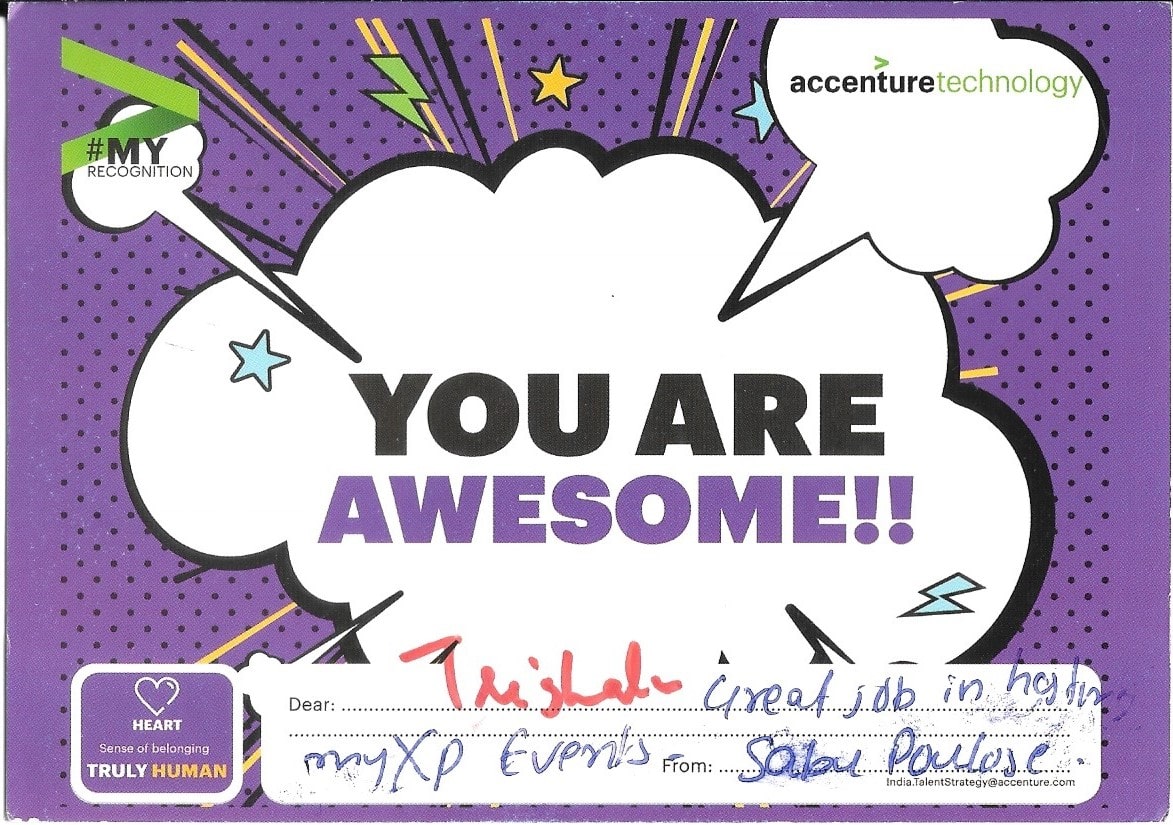 #MY
RECOGNITION
accenturetechnology
YOU ARE
AWESOME!!
HEART
Sense of belonging
TRULY HUMAN
Dear: Trishala Great job in hosting
myXp Events - From: Sabu Poulose.
India.TalentStrategy@accenture.com